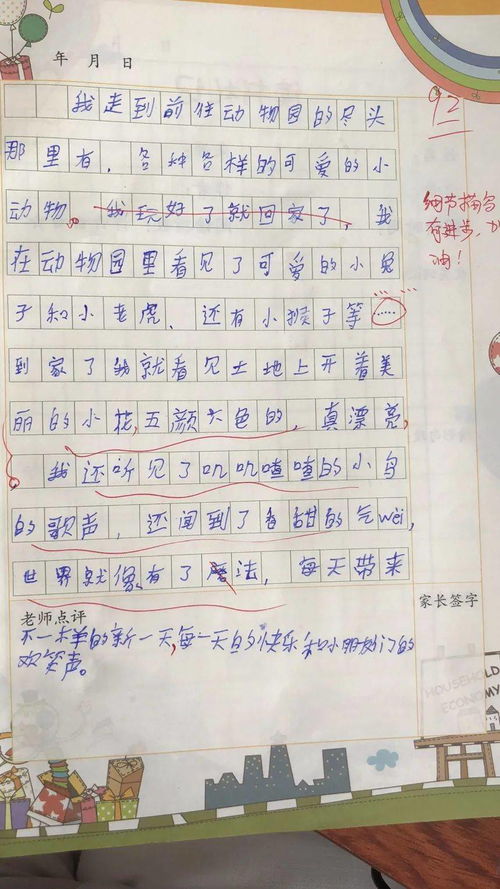 年 月 日
92
我走到前住动物园的尽头
那里有，各种各样的可爱的小
动物。我玩好了就回家了，我
细节描写
有进步，加
油！
在动物园里看见了可爱的小兔
子和小老虎、还有小猴子等……
到家了我就看见土地上开着美
丽的小花，五颜六色的，真漂亮，
我还听见了叽叽喳喳的小鸟
的歌声，还闻到了香甜的气wei，
世界就像有了魔法，每天带来
老师点评
家长签字
不一样的新一天，每一天的快乐和小朋友门的
欢笑声。
HOUSEHOLD
ECONOMY